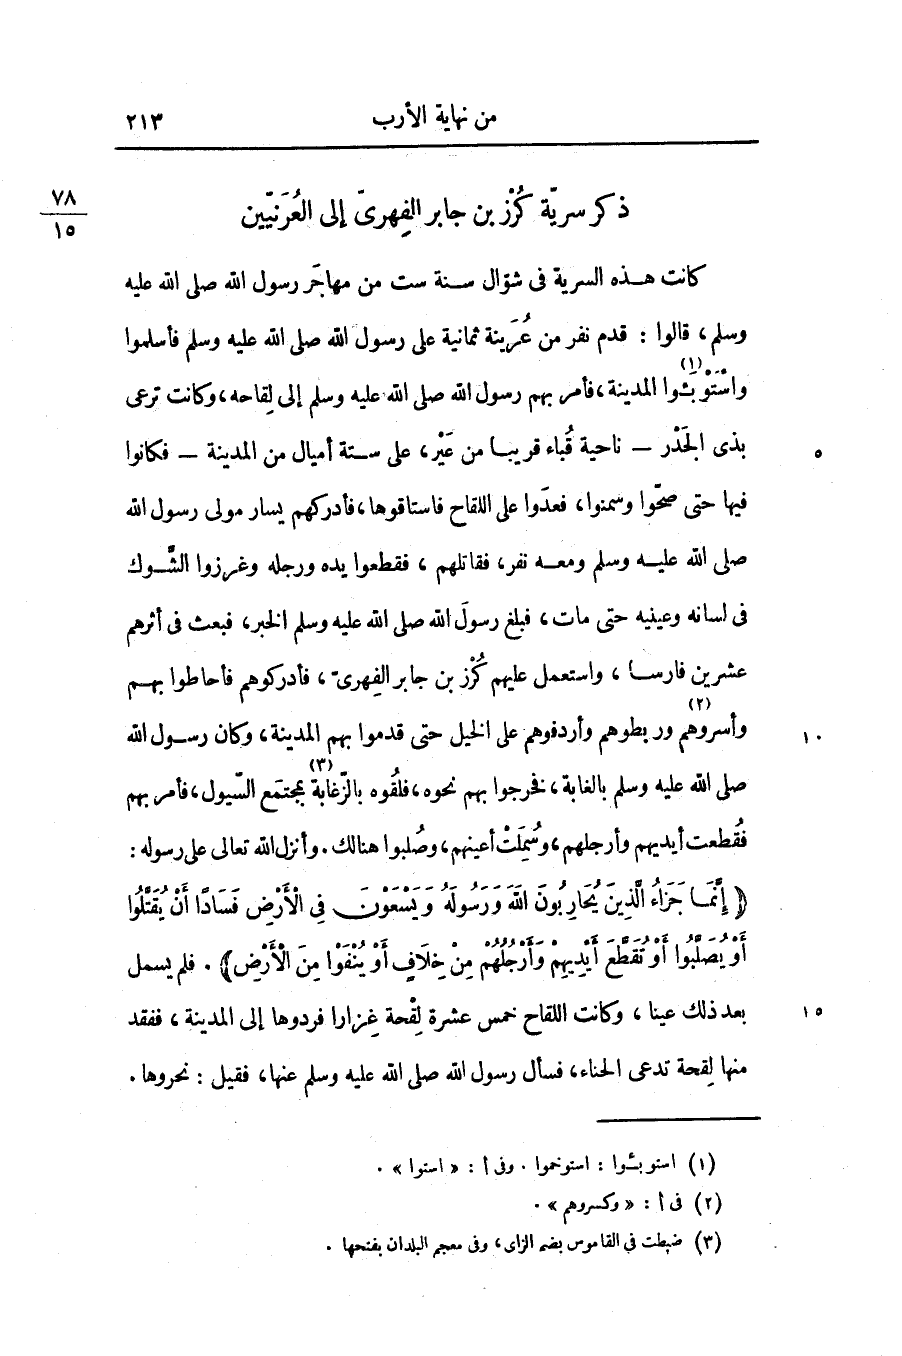 من نهاية الأرب ٢١٣
٧٨
١٥
ذكر سريّة كُرْز بن جابر الفِهرىّ إلى العُرَنيّين
كانت هذه السرية فى شوّال سنة ست من مهاجَر رسول الله صلى الله عليه
وسلم، قالوا : قدم نفر من عُرَينة ثمانية على رسول الله صلى الله عليه وسلم فأسلموا
واسْتَوْبَئُوا (١) المدينة، فأمر بهم رسول الله صلى الله عليه وسلم إلى لِقاحه، وكانت ترعى
بذى الجَدْر — ناحية قُباء قريبا من عَيْر، على ستة أميال من المدينة — فكانوا ٥
فيها حتى صحّوا وسمنوا، فعدَوا على اللقاح فاستاقوها، فأدركهم يسار مولى رسول الله
صلى الله عليه وسلم ومعه نفر، فقاتلهم ، فقطعوا يده ورجله وغرزوا الشَّوك
فى لسانه وعينيه حتى مات، فبلغ رسولَ الله صلى الله عليه وسلم الخبر، فبعث فى أثرهم
عشرين فارسا ، واستعمل عليهم كُرْز بن جابر الفِهرىّ ، فأدركوهم فأحاطوا بهم
وأسروهم (٢) وربطوهم وأردفوهم على الخيل حتى قدموا بهم المدينة، وكان رسول الله ١٠
صلى الله عليه وسلم بالغابة، فخرجوا بهم نحوه، فلقُوه بالزّغابة (٣) بمجتمَع السّيول، فأمر بهم
فقُطعت أيديهم وأرجلهم، وسُمِلَتْ أعينهم، وصُلبوا هنالك . وأنزل الله تعالى على رسوله :
﴿ إِنَّمَا جَزَاءُ الَّذِينَ يُحَارِبُونَ اللهَ وَرَسُولَهُ وَيَسْعَوْنَ فِى الْأَرْضِ فَسَادًا أَنْ يُقَتَّلُوا
أَوْ يُصَلَّبُوا أَوْ تُقَطَّعَ أَيْدِيهِمْ وَأَرْجُلُهُمْ مِنْ خِلَافٍ أَوْ يُنْفَوْا مِنَ الْأَرْضِ ﴾ . فلم يسمل
بعد ذلك عينا ، وكانت اللقاح خمس عشرة لِقْحة غِزارا فردوها إلى المدينة ، ففقد ١٥
منها لِقحة تدعى الحناء، فسأل رسول الله صلى الله عليه وسلم عنها، فقيل : نحروها .
(١) استوبئوا : استوخموا . وفى أ : « استوا » .
(٢) فى أ : « وكسروهم » .
(٣) ضبطت فى القاموس بضم الزاى، وفى معجم البلدان بفتحها .